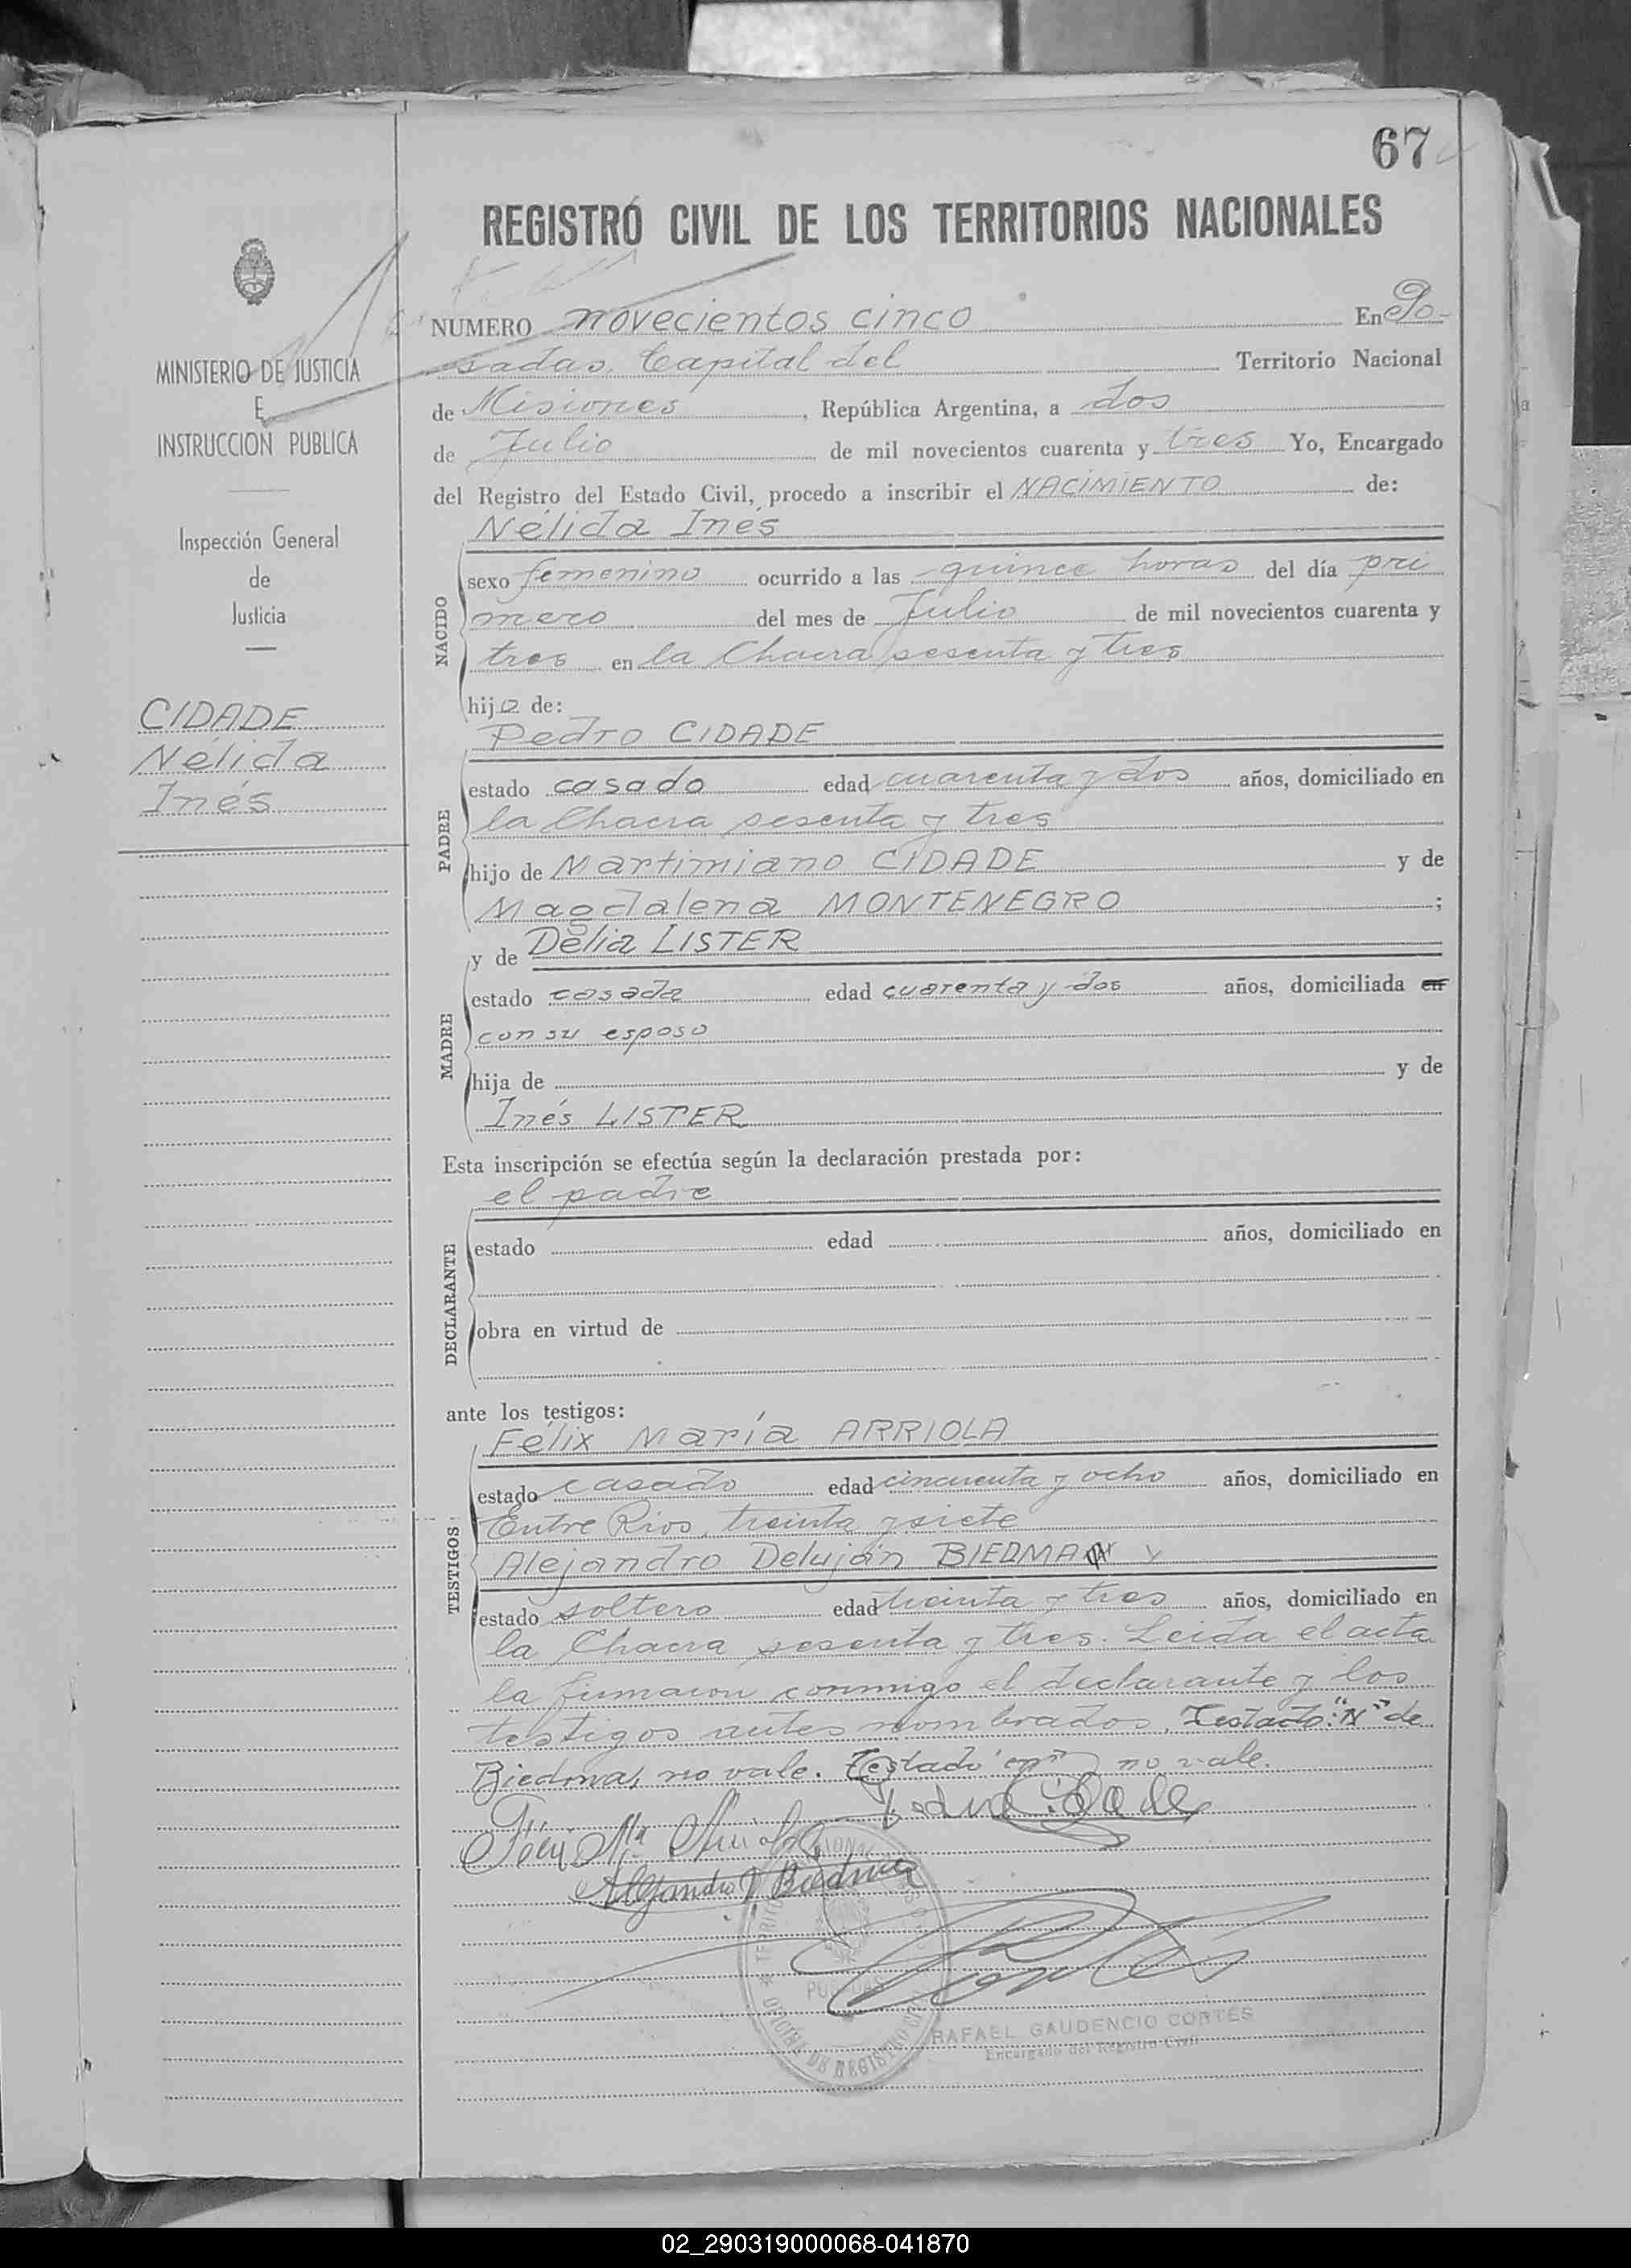 67
REGISTRO CIVIL DE LOS TERRITORIOS NACIONALES
MINISTERIO DE JUSTICIA
E
INSTRUCCION PUBLICA
Inspección General
de
Justicia
CIDADE
Nélida
Inés
NUMERO novecientos cinco En Po-
sadas, Capital del Territorio Nacional
de Misiones, República Argentina, a dos
de Julio de mil novecientos cuarenta y tres Yo, Encargado
del Registro del Estado Civil, procedo a inscribir el NACIMIENTO de:
Nélida Inés
NACIDO
sexo femenino ocurrido a las quince horas del día pri
mero del mes de Julio de mil novecientos cuarenta y
tres en la Chacra sesenta y tres
hija de:
Pedro CIDADE
PADRE
estado casado edad cuarenta y dos años, domiciliado en
la Chacra sesenta y tres
hijo de Martimiano CIDADE y de
Magdalena MONTENEGRO;
y de Délia LISTER
MADRE
estado casada edad cuarenta y dos años, domiciliada en
con su esposo
hija de y de
Inés LISTER
Esta inscripción se efectúa según la declaración prestada por:
el padre
DECLARANTE
estado edad años, domiciliado en
obra en virtud de
ante los testigos:
Félix María ARRIOLA
TESTIGOS
estado casado edad cincuenta y ocho años, domiciliado en
Entre Rios, treinta y siete
Alejandro Deluján BIEDMA y
estado soltero edad treinta y tres años, domiciliado en
la Chacra sesenta y tres. Leida el acta
la firmaron conmigo el declarante y los
testigos antes nombrados. Testado: "N" de
Biedma, no vale. Testado "en" no vale.
Pedro Cidade
Félix Ma Arriola
Alejandro D Biedma
Cortés
OFICINA DE REGISTRO
RAFAEL GAUDENCIO CORTES
Encargado del Registro Civil
02_290319000068-041870